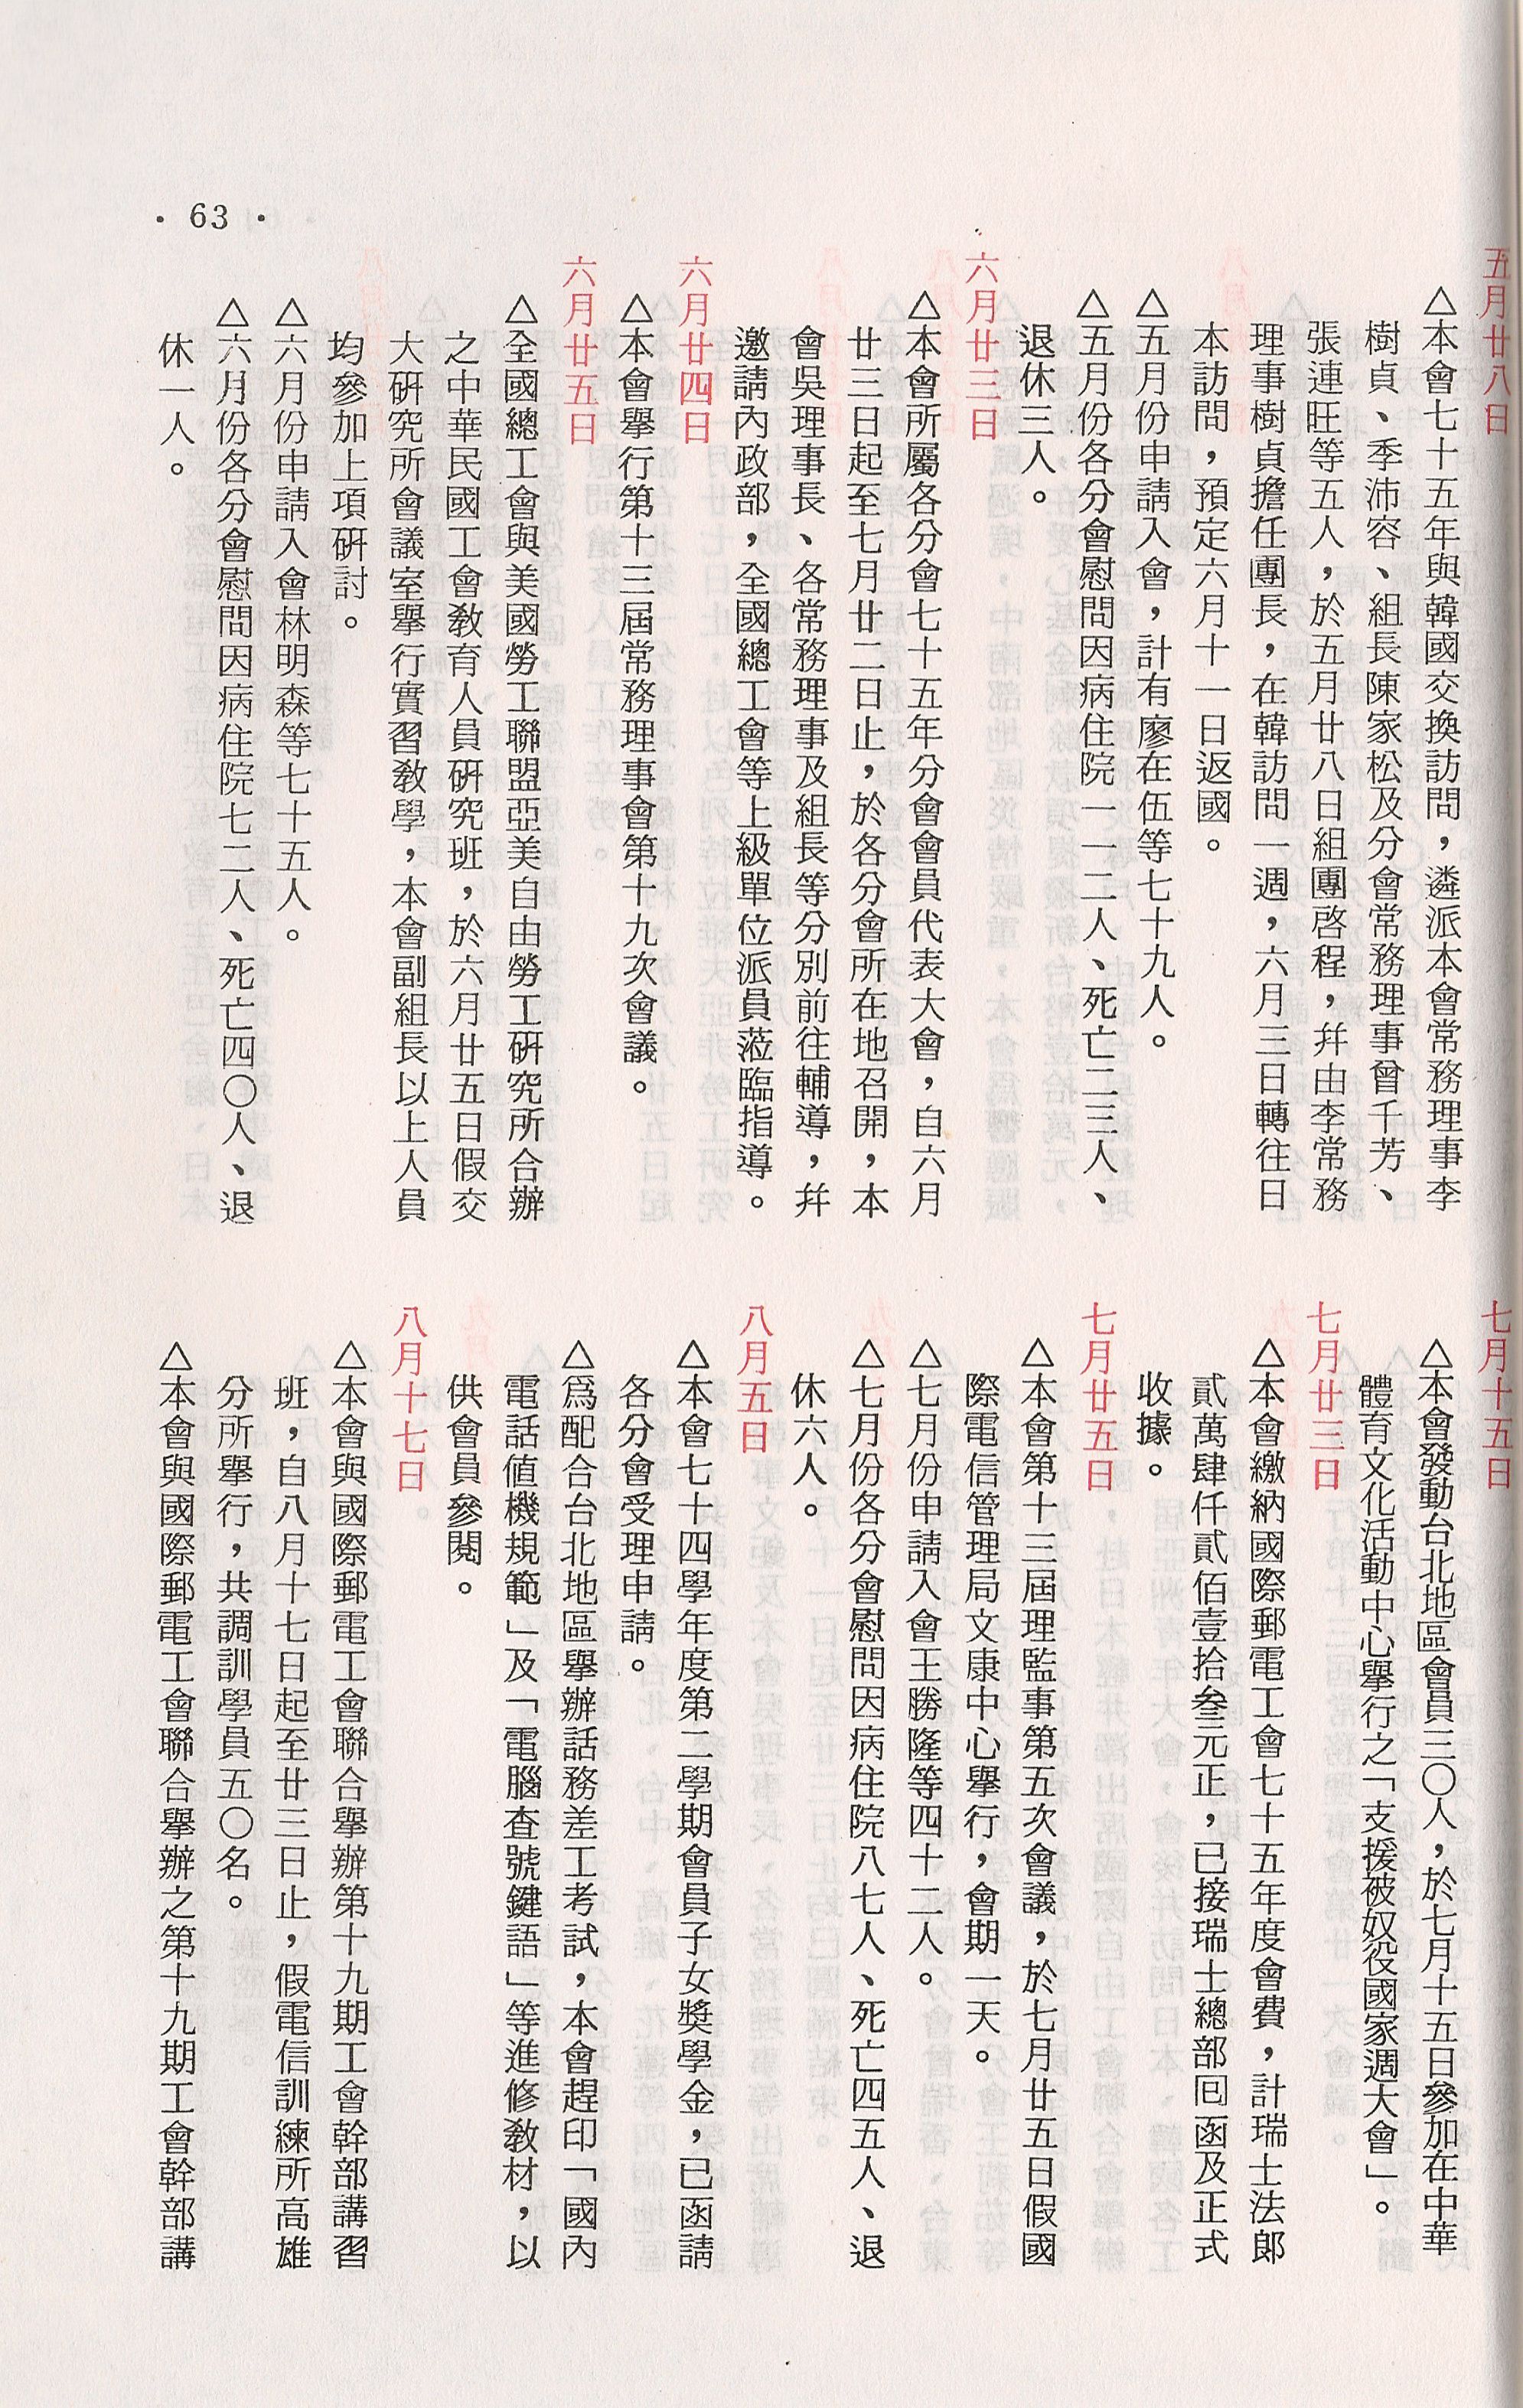 五月廿八日
△本會七十五年與韓國交換訪問，遴派本會常務理事李
樹貞、季沛容、組長陳家松及分會常務理事曾千芳、
張連旺等五人，於五月廿八日組團啓程，幷由李常務
理事樹貞擔任團長，在韓訪問一週，六月三日轉往日
本訪問，預定六月十一日返國。
△五月份申請入會，計有廖在伍等七十九人。
△五月份各分會慰問因病住院一一二人、死亡二三人、
退休三人。
六月廿三日
△本會所屬各分會七十五年分會會員代表大會，自六月
廿三日起至七月廿二日止，於各分會所在地召開，本
會吳理事長、各常務理事及組長等分別前往輔導，幷
邀請內政部，全國總工會等上級單位派員蒞臨指導。
六月廿四日
△本會舉行第十三屆常務理事會第十九次會議。
六月廿五日
△全國總工會與美國勞工聯盟亞美自由勞工硏究所合辦
之中華民國工會敎育人員硏究班，於六月廿五日假交
大硏究所會議室舉行實習敎學，本會副組長以上人員
均參加上項硏討。
△六月份申請入會林明森等七十五人。
△六月份各分會慰問因病住院七二人、死亡四〇人、退
休一人。
七月十五日
△本會發動台北地區會員三〇人，於七月十五日參加在中華
體育文化活動中心舉行之「支援被奴役國家週大會」。
七月廿三日
△本會繳納國際郵電工會七十五年度會費，計瑞士法郎
貳萬肆仟貳佰壹拾叁元正，已接瑞士總部囘函及正式
收據。
七月廿五日
△本會第十三屆理監事第五次會議，於七月廿五日假國
際電信管理局文康中心舉行，會期一天。
△七月份申請入會王勝隆等四十二人。
△七月份各分會慰問因病住院八七人、死亡四五人、退
休六人。
八月五日
△本會七十四學年度第二學期會員子女獎學金，已函請
各分會受理申請。
△爲配合台北地區舉辦話務差工考試，本會趕印「國內
電話値機規範」及「電腦查號鍵語」等進修敎材，以
供會員參閱。
八月十七日
△本會與國際郵電工會聯合舉辦第十九期工會幹部講習
班，自八月十七日起至廿三日止，假電信訓練所高雄
分所舉行，共調訓學員五〇名。
△本會與國際郵電工會聯合舉辦之第十九期工會幹部講
• 63 •